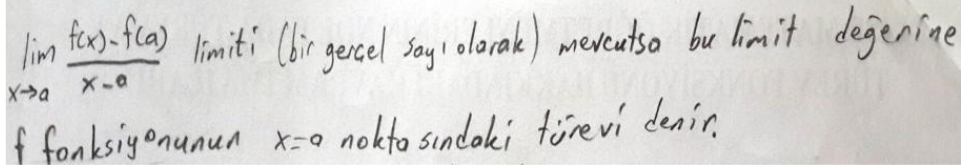 lim x→a f(x)-f(a) / x-a limiti (bir gerçel sayı olarak) mevcutsa bu limit değerine
f fonksiyonunun x=a noktasındaki türevi denir.